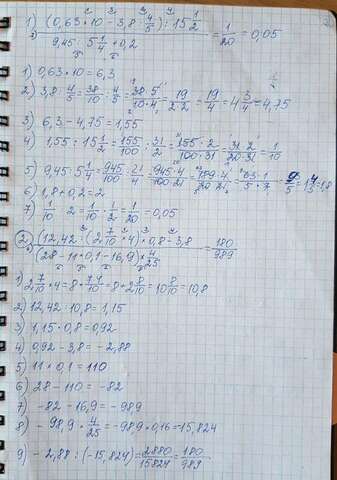 1) (0,63 · 10 - 3,8 : 4/5) : 15 1/2 / 9,45 : 5 1/4 + 0,2 = 1/20 = 0,05
1) 0,63 · 10 = 6,3
2) 3,8 : 4/5 = 38/10 : 4/5 = 38·5/10·4 = 19/2·2 = 19/4 = 4 3/4 = 4,75
3) 6,3 - 4,75 = 1,55
4) 1,55 : 15 1/2 = 155/100 : 31/2 = 155·2/100·31 = 31·2/20·31 = 1/10
5) 9,45 : 5 1/4 = 945/100 : 21/4 = 945·4/100·21 = 189·4/20·21 = 63·1/5·7 = 9/5 = 1 4/5 = 1,8
6) 1,8 + 0,2 = 2
7) 1/10 : 2 = 1/10 · 1/2 = 1/20 = 0,05
2) (12,42 : (2 7/10 · 4) · 0,8 - 3,8 / (28 - 11 · 0,1 - 16,9) · 4/25 = 180/989
1) 2 7/10 · 4 = 8 + 2 8/10 = 10 8/10 = 10,8
2) 12,42 : 10,8 = 1,15
3) 1,15 · 0,8 = 0,92
4) 0,92 - 3,8 = - 2,88
5) 11 : 0,1 = 110
6) 28 - 110 = - 82
7) - 82 - 16,9 = - 98,9
8) - 98,9 · 4/25 = - 98,9 · 0,16 = - 15,824
9) - 2,88 : (- 15,824) = 2880/15824 = 180/989